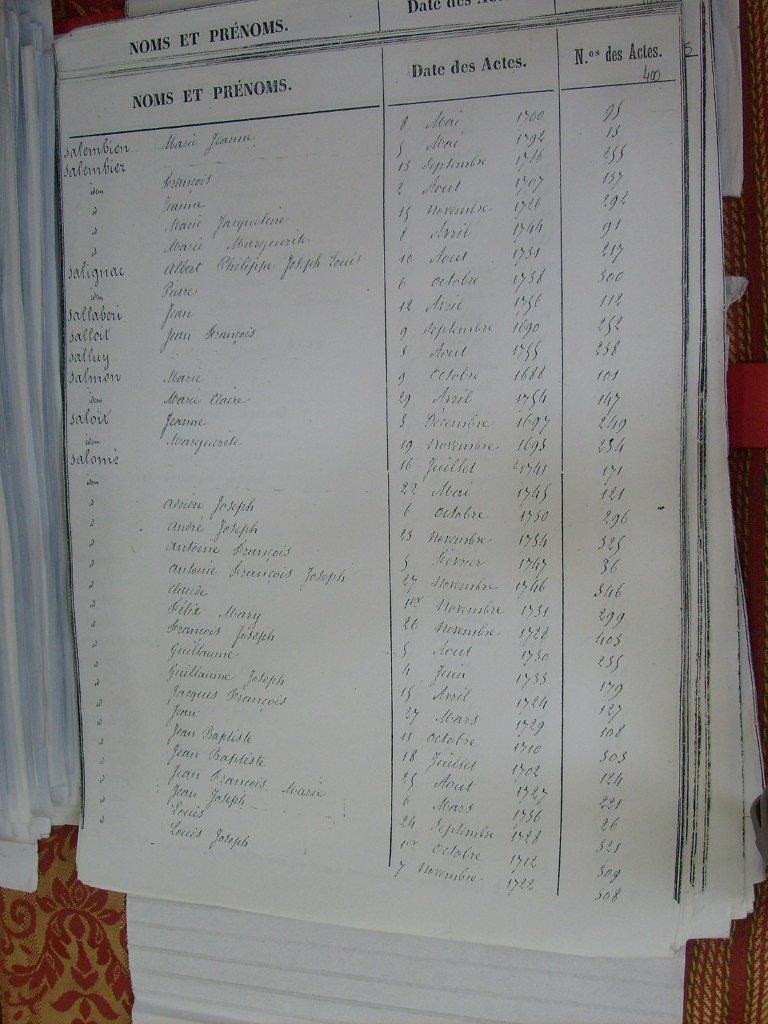 NOMS ET PRÉNOMS.
Date des
NOMS ET PRÉNOMS.
Date des Actes.
N.os des Actes.
400
salembien
salembier
idem
salignac
idem
sallaberi
salloit
salluy
salmon
idem
saloit
idem
salomé
idem
Marie Jeanne
François
Jeanne
Marie Jacqueline
Marie Marguerite
Albert Philippe Joseph Louis
Pierre
Jean
Jean François
Marie
Marie Claire
Jeanne
Marguerite
Adrien Joseph
André Joseph
Antoine François
Antoine François Joseph
Claude
Félix Mary
François Joseph
Guillaume
Guillaume Joseph
Jacques François
Jean
Jean Baptiste
Jean Baptiste
Jean François Marie
Jean Joseph
Louis
Louis Joseph
8 Mai 1700 95
5 Mai 1792 15
13 Septembre 1716 255
2 Aout 1707 157
15 Novembre 1726 292
8 Avril 1744 91
10 Aout 1731 217
6 Octobre 1738 300
12 Avril 1756 112
9 Septembre 1690 252
5 Aout 1755 238
9 Octobre 1688 101
29 Avril 1754 147
3 Décembre 1697 249
19 Novembre 1693 234
16 Juillet 1741 171
22 Mai 1745 121
6 Octobre 1730 296
23 Novembre 1734 325
5 Février 1747 36
27 Novembre 1746 346
1er Novembre 1731 299
26 Novembre 1728 403
5 Aout 1730 235
4 Juin 1733 179
15 Avril 1724 127
27 Mars 1729 108
11 Octobre 1710 303
18 Juillet 1702 124
25 Aout 1727 221
6 Mars 1736 26
24 Septembre 1728 321
1er Octobre 1712 309
7 Novembre 1722 308